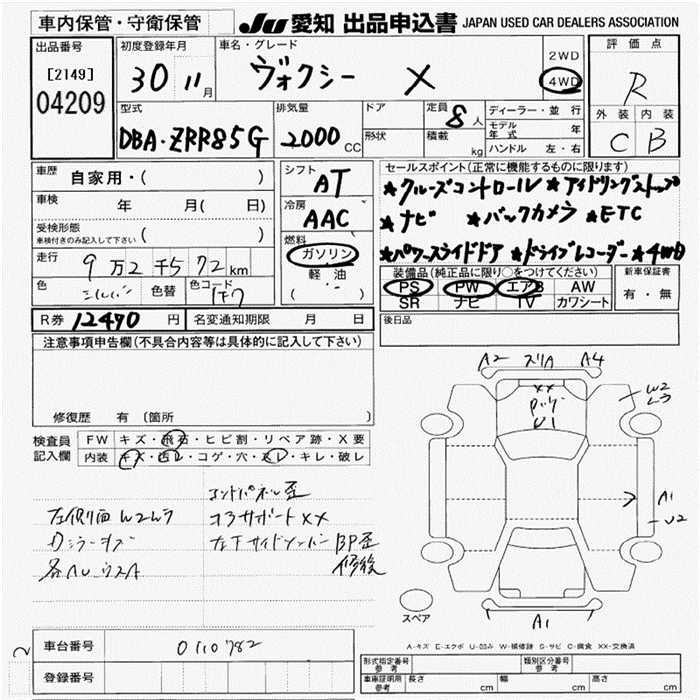 車内保管・守衛保管
JU 愛知 出品申込書 JAPAN USED CAR DEALERS ASSOCIATION
出品番号
[2149]
04209
初度登録年月
30 11月
車名・グレード
ヴォクシー X
2WD
4WD
評価点
R
外装 内装
C B
型式
DBA・ZRR85G
排気量
2000 CC
ドア
形状
定員 8人
積載 kg
ディーラー・並行
モデル年式 年
ハンドル 左・右
車歴 自家用・( )
車検 年 月( 日)
受検形態
車検付きのみ記入して下さい ( )
走行 9万2千5 72km
色 シルバー 色替 色コード 1F7
シフト AT
冷房 AAC
燃料 ガソリン
軽油
( )
セールスポイント(正常に機能するものに限ります)
★クルーズコントロール ★アイドリングストップ
★ナビ ★バックカメラ ★ETC
★パワースライドドア ★ドライブレコーダー ★4WD
装備品(純正品に限り○をつけてください)
PS PW エアB AW
SR ナビ TV カワシート
新車保証書
有・無
R券 12490円 名変通知期限 月 日
後日品
注意事項申告欄(不具合内容等は具体的に記入して下さい)
修復歴 有 〔箇所 〕
検査員記入欄
FW キズ・飛石・ヒビ割・リペア跡・X要
内装 キズ・汚レ・コゲ・穴・スレ・キレ・破レ
コンドパネル歪
左側面W2ムラ コアサポートXX
Dミラーキズ 左下サイドメンバーBP歪
修後
A2 スリA A4
XX
U1
W2
ムラ
A1
U2
A1
スペア
A-キズ E-エクボ U-凹み W-補修跡 S-サビ C-腐食 XX-交換済
車台番号 0110782
登録番号
型式指定番号 参考
類別区分番号 参考
車庫証明用 参考 長さ cm 幅 cm 高さ cm